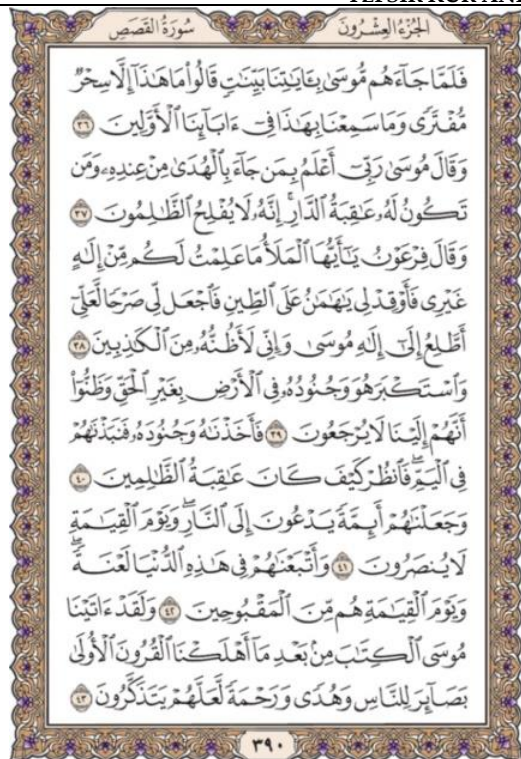 سُورَةُ القَصَصِ
الجُزْءُ العِشْرُونَ
فَلَمَّا جَآءَهُم مُّوسَىٰ بِـَٔايَـٰتِنَا بَيِّنَـٰتٍ قَالُوا۟ مَا هَـٰذَآ إِلَّا سِحْرٌ
مُّفْتَرًى وَمَا سَمِعْنَا بِهَـٰذَا فِىٓ ءَابَآئِنَا ٱلْأَوَّلِينَ ٣٦
وَقَالَ مُوسَىٰ رَبِّىٓ أَعْلَمُ بِمَن جَآءَ بِٱلْهُدَىٰ مِنْ عِندِهِۦ وَمَن
تَكُونُ لَهُۥ عَـٰقِبَةُ ٱلدَّارِ ۖ إِنَّهُۥ لَا يُفْلِحُ ٱلظَّـٰلِمُونَ ٣٧
وَقَالَ فِرْعَوْنُ يَـٰٓأَيُّهَا ٱلْمَلَأُ مَا عَلِمْتُ لَكُم مِّنْ إِلَـٰهٍ
غَيْرِى فَأَوْقِدْ لِى يَـٰهَـٰمَـٰنُ عَلَى ٱلطِّينِ فَٱجْعَل لِّى صَرْحًا لَّعَلِّىٓ
أَطَّلِعُ إِلَىٰٓ إِلَـٰهِ مُوسَىٰ وَإِنِّى لَأَظُنُّهُۥ مِنَ ٱلْكَـٰذِبِينَ ٣٨
وَٱسْتَكْبَرَ هُوَ وَجُنُودُهُۥ فِى ٱلْأَرْضِ بِغَيْرِ ٱلْحَقِّ وَظَنُّوٓا۟
أَنَّهُمْ إِلَيْنَا لَا يُرْجَعُونَ ٣٩ فَأَخَذْنَـٰهُ وَجُنُودَهُۥ فَنَبَذْنَـٰهُمْ
فِى ٱلْيَمِّ ۖ فَٱنظُرْ كَيْفَ كَانَ عَـٰقِبَةُ ٱلظَّـٰلِمِينَ ٤٠
وَجَعَلْنَـٰهُمْ أَئِمَّةً يَدْعُونَ إِلَى ٱلنَّارِ ۖ وَيَوْمَ ٱلْقِيَـٰمَةِ
لَا يُنصَرُونَ ٤١ وَأَتْبَعْنَـٰهُمْ فِى هَـٰذِهِ ٱلدُّنْيَا لَعْنَةً ۖ
وَيَوْمَ ٱلْقِيَـٰمَةِ هُم مِّنَ ٱلْمَقْبُوحِينَ ٤٢ وَلَقَدْ ءَاتَيْنَا
مُوسَى ٱلْكِتَـٰبَ مِنۢ بَعْدِ مَآ أَهْلَكْنَا ٱلْقُرُونَ ٱلْأُولَىٰ
بَصَآئِرَ لِلنَّاسِ وَهُدًى وَرَحْمَةً لَّعَلَّهُمْ يَتَذَكَّرُونَ ٤٣
٣٩٠